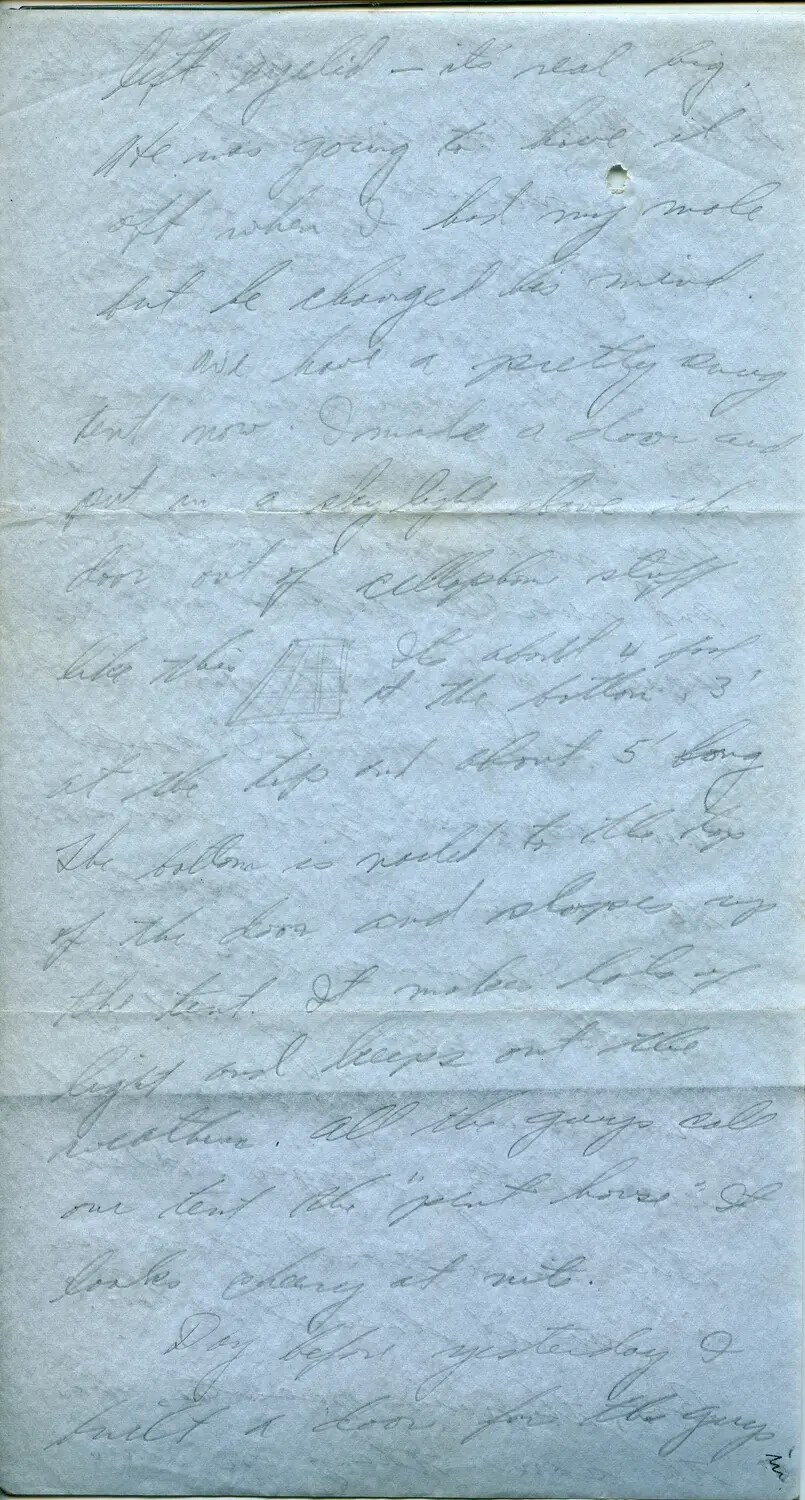 left eyelid – it's real big.
He was going to have it
off when I had my mole
but he changed his mind.
We have a pretty snug
tent now. I made a door and
put in a sky light above the
door out of cellophane stuff
like this It's about 4'
at the bottom, 3'
at the top and about 5' long
The bottom is nailed to the top
of the door and slopes up
the tent. It makes lots of
light and keeps out the
weather. All the guys call
our tent the "pent house" It
looks cheery at nite.
Day before yesterday I
built a door for the guys